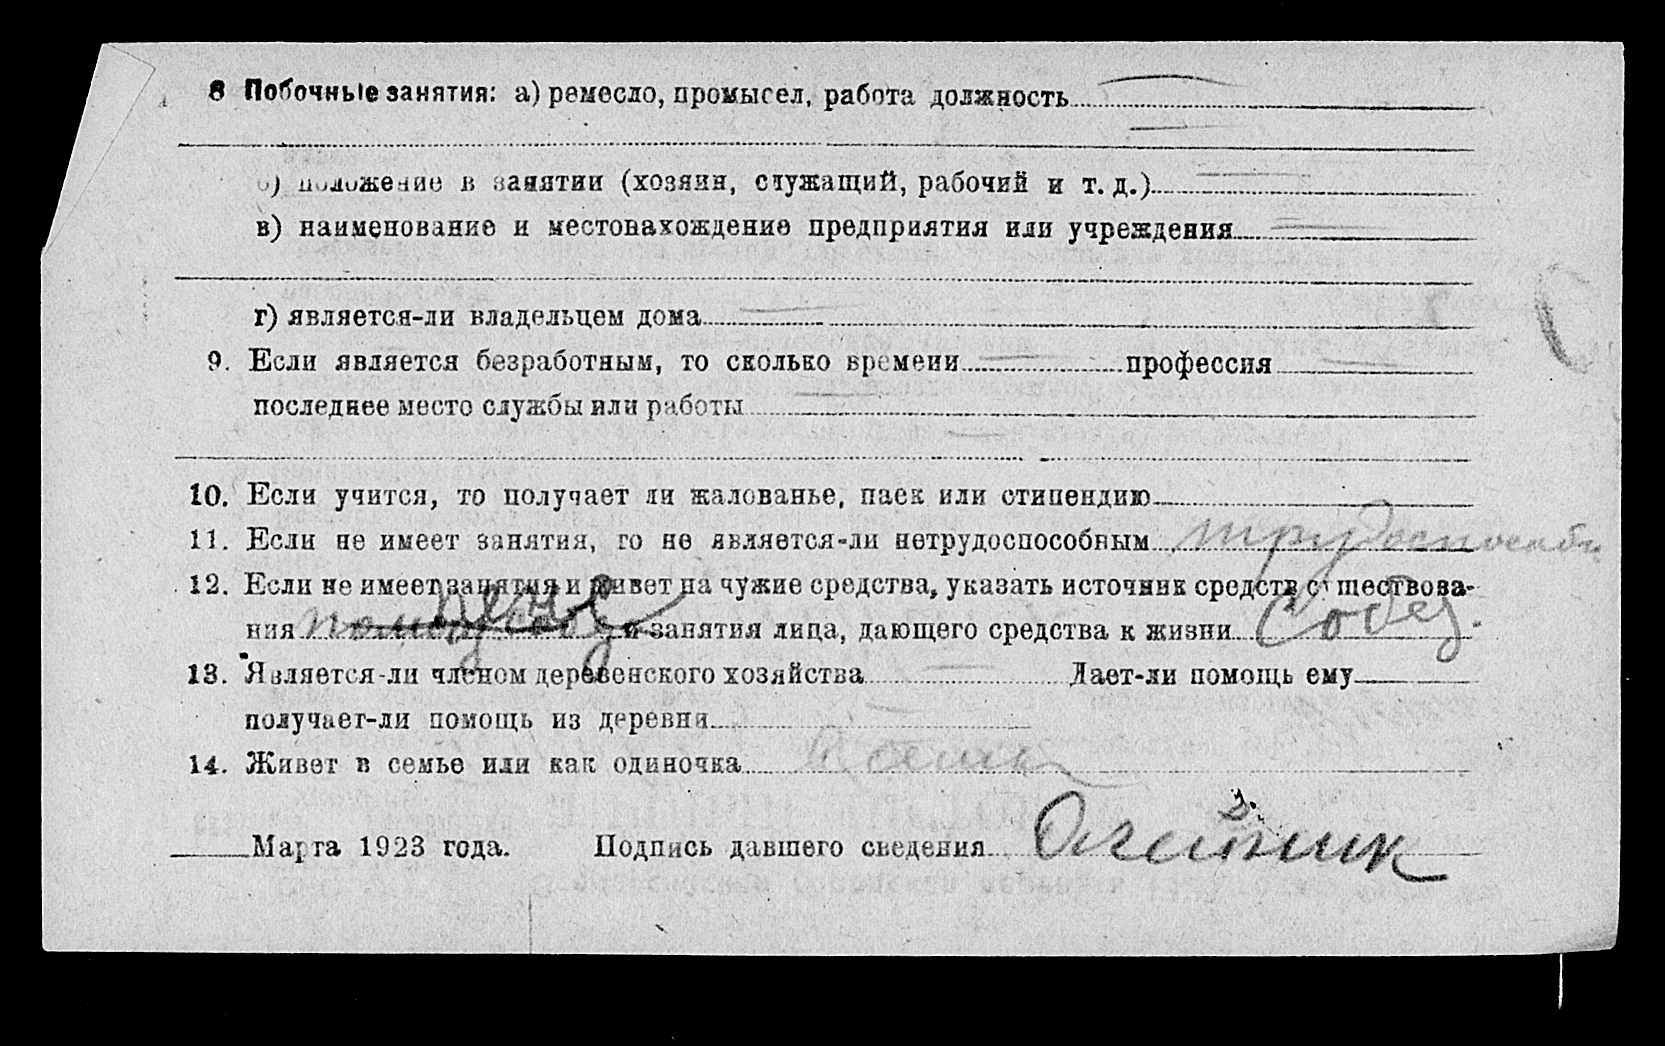 8 Побочные занятия: а) ремесло, промысел, работа должность
б) положение в занятии (хозяин, служащий, рабочий и т. д.)
в) наименование и местонахождение предприятия или учреждения
г) является-ли владельцем дома
9. Если является безработным, то сколько времени профессия
последнее место службы или работы
10. Если учится, то получает ли жалованье, паек или стипендию
11. Если не имеет занятия, то не является-ли нетрудоспособным трудоспособн
12. Если не имеет занятия и живет на чужие средства, указать источник средств существова-
ния и занятия лица, дающего средства к жизни Собез.
13. Является-ли членом деревенского хозяйства Дает-ли помощь ему
получает-ли помощь из деревни
14. Живет в семье или как одиночка
Марта 1923 года. Подпись давшего сведения Олейник